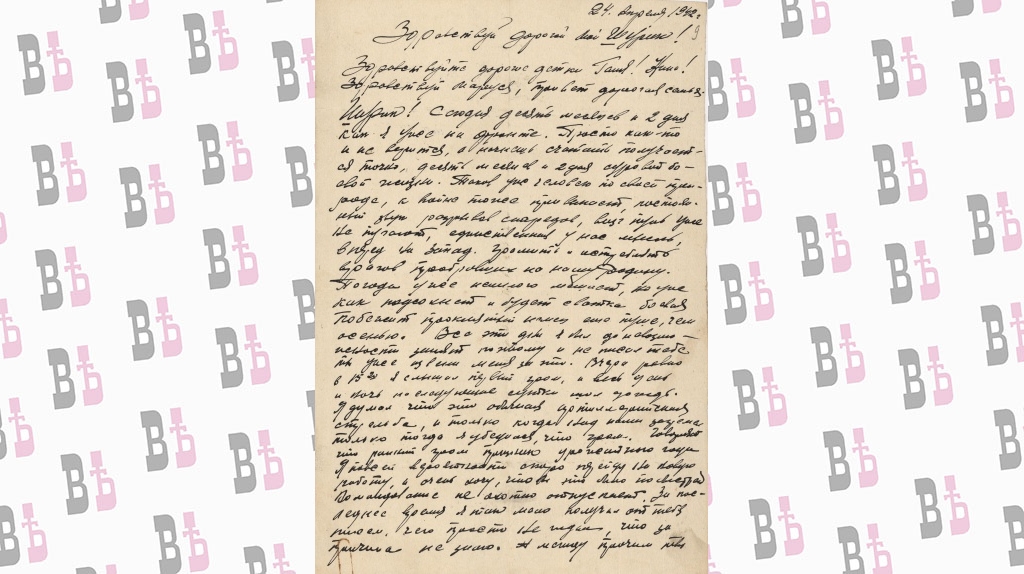 24. апреля 1942г.
Здравствуй дорогой мой Шурик!
Здравствуйте дорогие детки Таня! Нина!
Здравствуй Маруся, привет дорогая
Шурик! Сегодня десять месяцев и 2 дня
как я уже на фронте. Просто как-то
и не верится, а начнешь считать получает-
ся точно, десять месяцев и 2 дня суровой бо-
евой жизни. Таков уже человек по своей при-
роде, к войне тоже привыкает, постоян-
ный звук разрывов снарядов, визг пуль уже
не пугают, единственная у нас мысль,
вперед на запад. Громить и истреблять
врагов пробравшихся на нашу родину.
Погода у нас немного мешает, но уже
как подсохнет и будет схватка боевая
побежит проклятый немец еще пуще, чем
осенью. Все эти дни я был до невозмо-
жности занят поэтому и не писал тебе
ты уже извини меня за это. Вчера ровно
в я слышал первый гром, и весь день
и ночь на следующие сутки шел дождь.
Я думал что это обычная артиллерийская
стрельба, и только когда
только тогда я убедился, что гром. Говорят
что ранний гром признак урожайного года
Я по всей вероятности скоро пойду на новую
работу, и очень хочу, чтобы это было
Командование не охотно отпускает. За пос-
леднее время я очень мало получаю от тебя
писем, чего просто не ждал, что за
причина не знаю. А между прочим
ВѢ